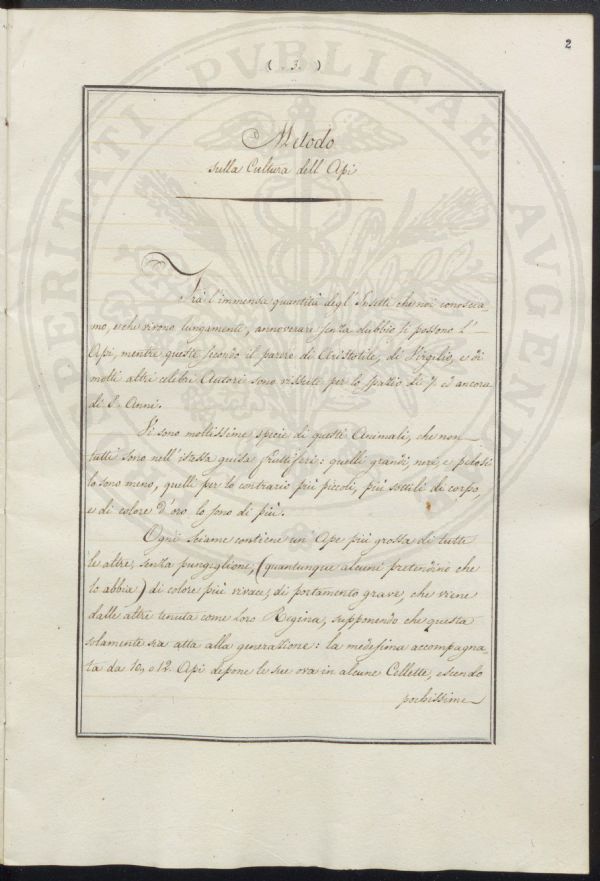 2
( . 3. )
Metodo
sulla Cultura dell Api
Trà l'immensa quantità degl' Insetti che noi conoscia_
mo, e che vivono lungamente, annoverare senza dubbio si possono l'
Api, mentre queste secondo il parere di Aristotile, di Virgilio, e di
molti altri celebri Autori sono vissute per lo spazio di 7. ed ancora
di 8. Anni.
Vi sono moltissime specie di questi Animali, che non
tutti sono nell'istessa guisa fruttiferi: quelli grandi, neri, e pelosi
lo sono meno, quelli per lo contrario più piccoli, più sottili di corpo,
e di colore d'oro lo sono di più.
Ogni sciame contiene un' Ape più grossa di tutte
le altre, senza pungiglione, (quantunque alcuni pretendino che
lo abbia) di colore più vivace, di portamento grave, che viene
dalle altre tenuta come loro Regina, supponendo che questa
solamente sia atta alla generazione: la medesima accompagna_
ta da 10, o 12. Api depone le sue ova in alcune Cellette, essendo
pochissime
VERITATI PVBLICAE AVGENDAE